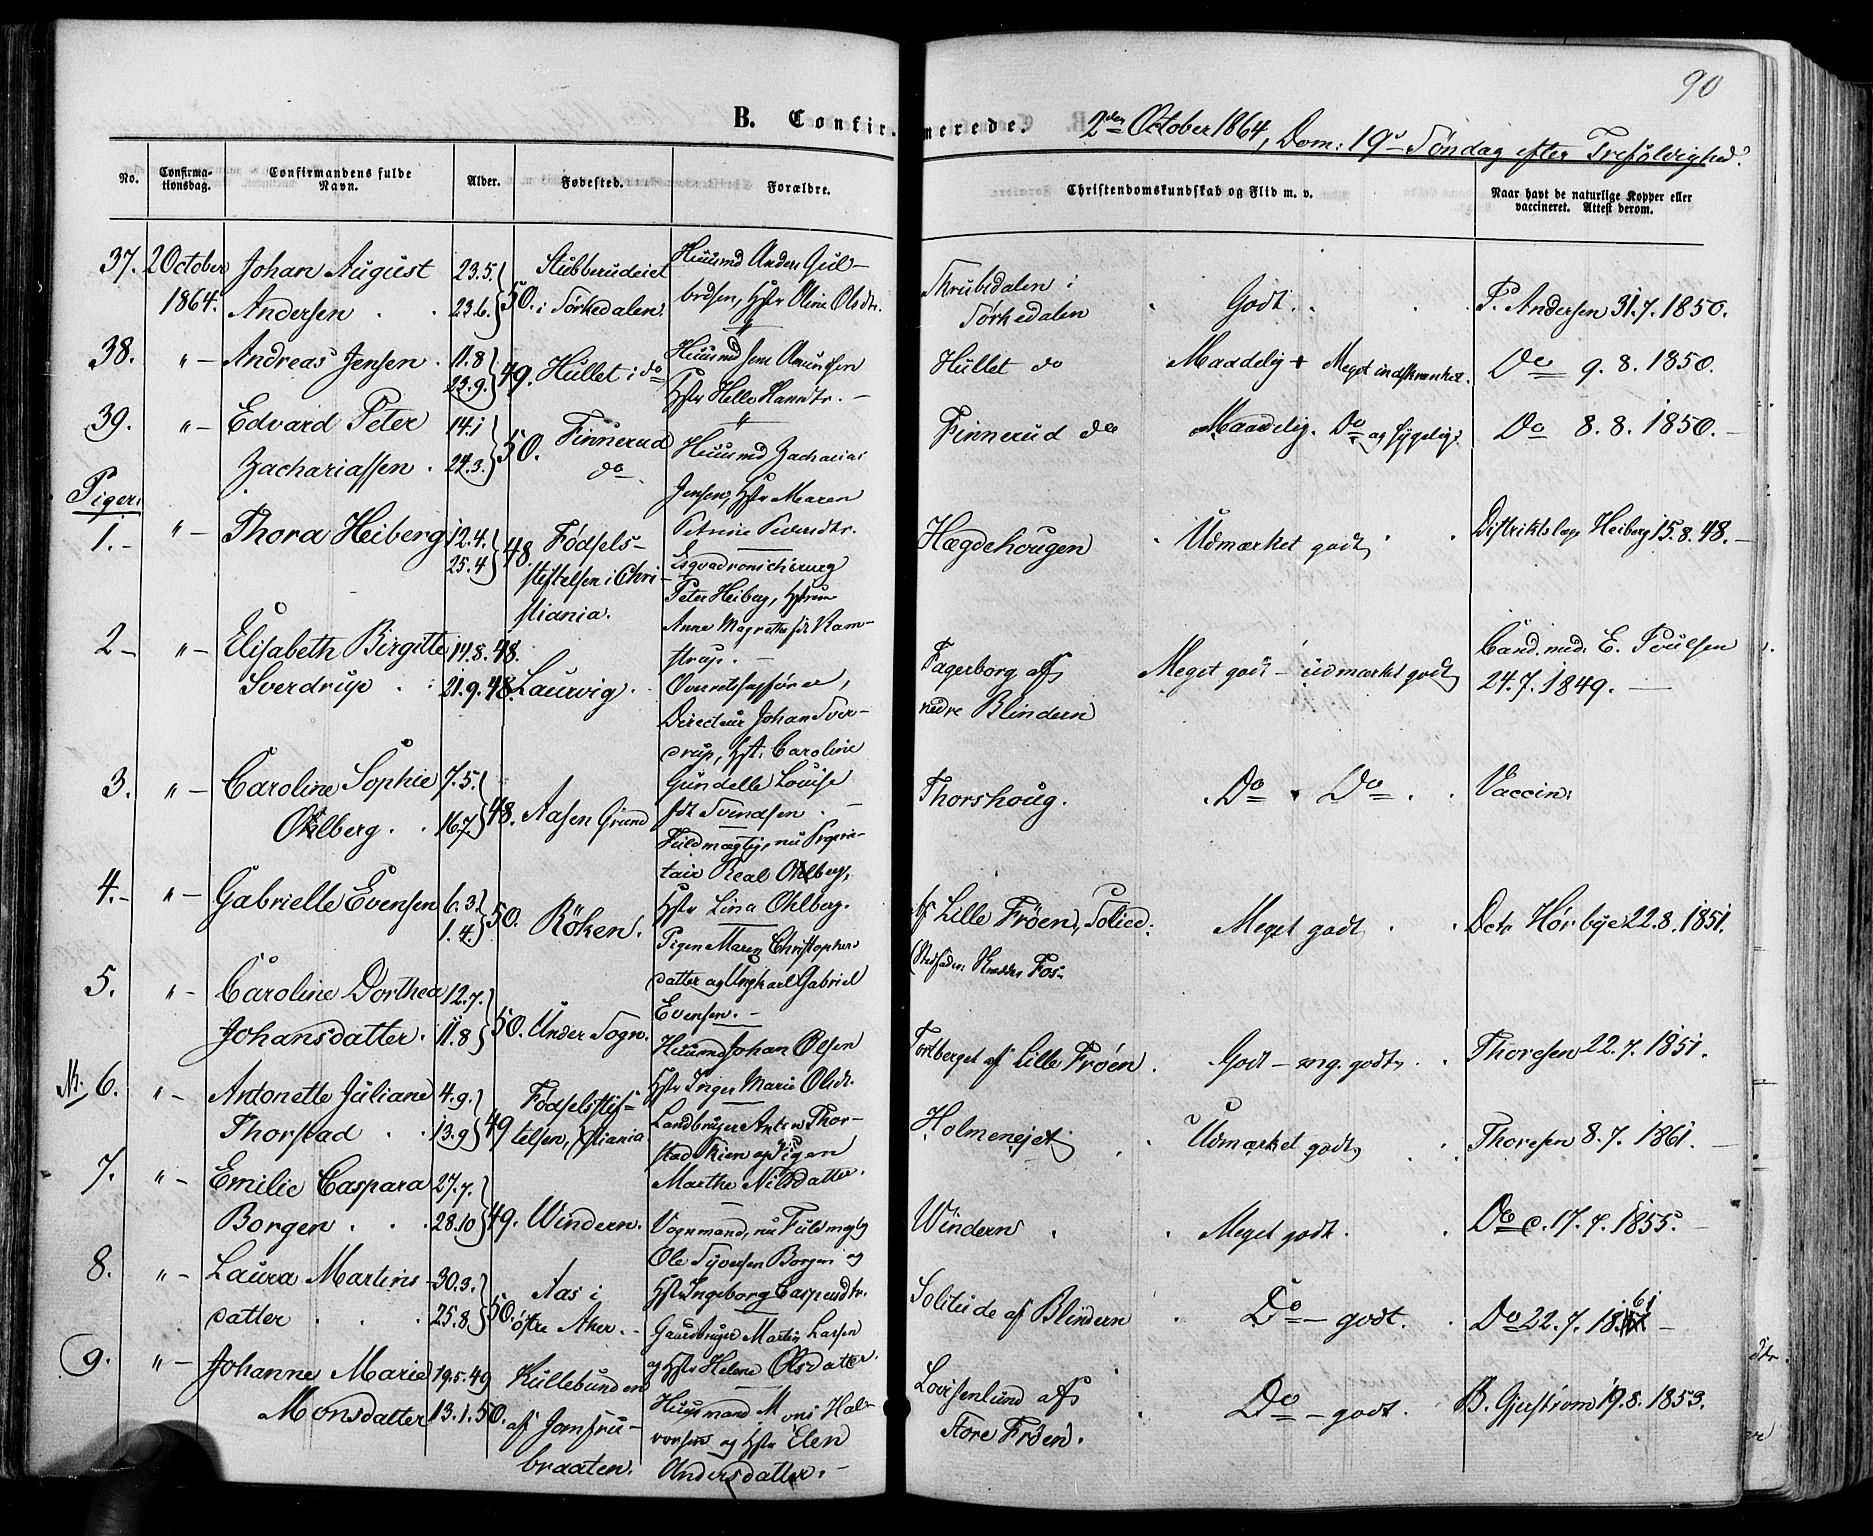 90
B. Confirmerede.
2den October 1864, Dom: 19de Søndag efter Trefoldighed.
No. Confirmationsdag. Confirmandens fulde Navn. Alder. Fødested. Forældre. Christendomskundskab og Flid m. v. Naar havt de naturlige Kopper eller vaccineret. Attest derom.
37. 2 October Johan August 23.5. Stubberudeiet Huusmd Anders Gul-
1864. Andersen 23.6. 50. i Sørkedalen. brdsen, Hstr Oline Olsdtr.
Skrubsdalen i Sørkedalen Godt. P. Andersen 31.7.1850.
38. "- Andreas Jensen 11.8 23.9. 49. Hullet i do Huusmd Jens Amundsen
Hstr Helle Hansdtr.
Hullet do Maadelig + Meget indskrænket. Do 9.8.1850.
39. "- Edvard Peter Zachariassen 14.1 24.3. 50. Finnerud do Huusmd Zacharias
Jensen, Hstr Maren
Finnerud do Maadelig. Do og sygelig. Do 8.8.1850.
Piger:
1. "- Thora Heiberg 12.4. 25.4 48. Fødsels-
stiftelsen i Chri-
stiania.
Esqvadronschirurg
Peter Heiberg, Hstru
Anne Magrethe fdt Kam-
strup.
Hægdehougen Udmærket godt Distriktslæge Heiberg 15.8.48.
2 "- Elisabeth Birgitte Sverdrup 14.8.48. 21.9.48. Laurvig. Overretssagfører,
Directeur Johan Sver-
drup, Hst. Caroline
Gundelle Louise
fdt Svendsen.
Fagerborg afs nedre Blindern Meget godt - udmærket godt Cand. med. E. Poulsen 24.7.1849.
3. "- Caroline Sophie Ohlberg 7.5. 16.7 48. Aasen Grund Fuldmægtig, nu Proprie-
tair Real Ohlberg,
Hstr Lina Ohlberg.
Thorshoug. Do Do Vaccin:
4. "- Gabrielle Evensen 6.3. 1.4. 50. Röken. Pigen Maren Christophers
datter og Ungkarl Gabriel
Evensen.
Lille Frøen, Solied. Meget godt Dctr Hørbye 22.8.1851.
5. "- Caroline Dorthea Johansdatter. 12.7. 11.8 50. Under Sogn. Huusmd Johan Olsen
Hstr Inger Marie Olsdt.
Tortberget af Lille Frøen Godt - mg. godt Thoresen 22.7.1851.
6. "- Antonette Juliane Thorstad 4.9. 13.9 49 Fødselsstif-
telsen, Xstiania
Landbruger Anton Thor-
stad Skien og Pigen
Marthe Nilsdatter.
Holmenejet Udmærket godt Thoresen 8.7.1861.
7. "- Emilie Caspara Borgen 27.7. 28.10 49. Windern. Vognmand, nu Fuldmgtg
Ole Syversen Borgen og
Hstr Ingeborg Caspersdtr.
Windern Meget godt. Do 17.7.1855.
8. "- Laura Martins-
datter 30.3. 25.8. 50. Aas i østre Aker. Gaardbruger Martin Larsen
og Hstr Helene Olsdatter.
Solitude af Blindern Do - godt. Do 22.7.1861
9. "- Johanne Marie Monsdatter 19.5.49 13.1.50. Kullebunden
af Jomfru-
braaten.
Huusmand Mons Hal-
vorsen og Hstr Elen
Andersdatter.
Lovisenlund afs Store Frøen. Do - godt. B. Gjestrøm 19.8.1853.